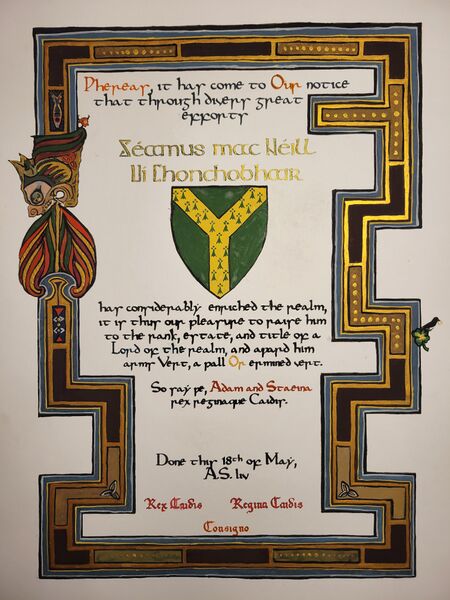 Whereas, it has come to Our notice
that through divers great
efforts
Séamus mac Néill
Uí Chonchobhair
has considerably enriched the realm,
it is thus our pleasure to raise him
to the rank, estate, and title of a
Lord of the realm, and award him
arms Vert, a pall Or ermined vert.
So say we, Adam and Staeina
rex reginaque Caidis.
Done this 18th of May,
A.S. liv
Rex Caidis Regina Caidis
Consigno